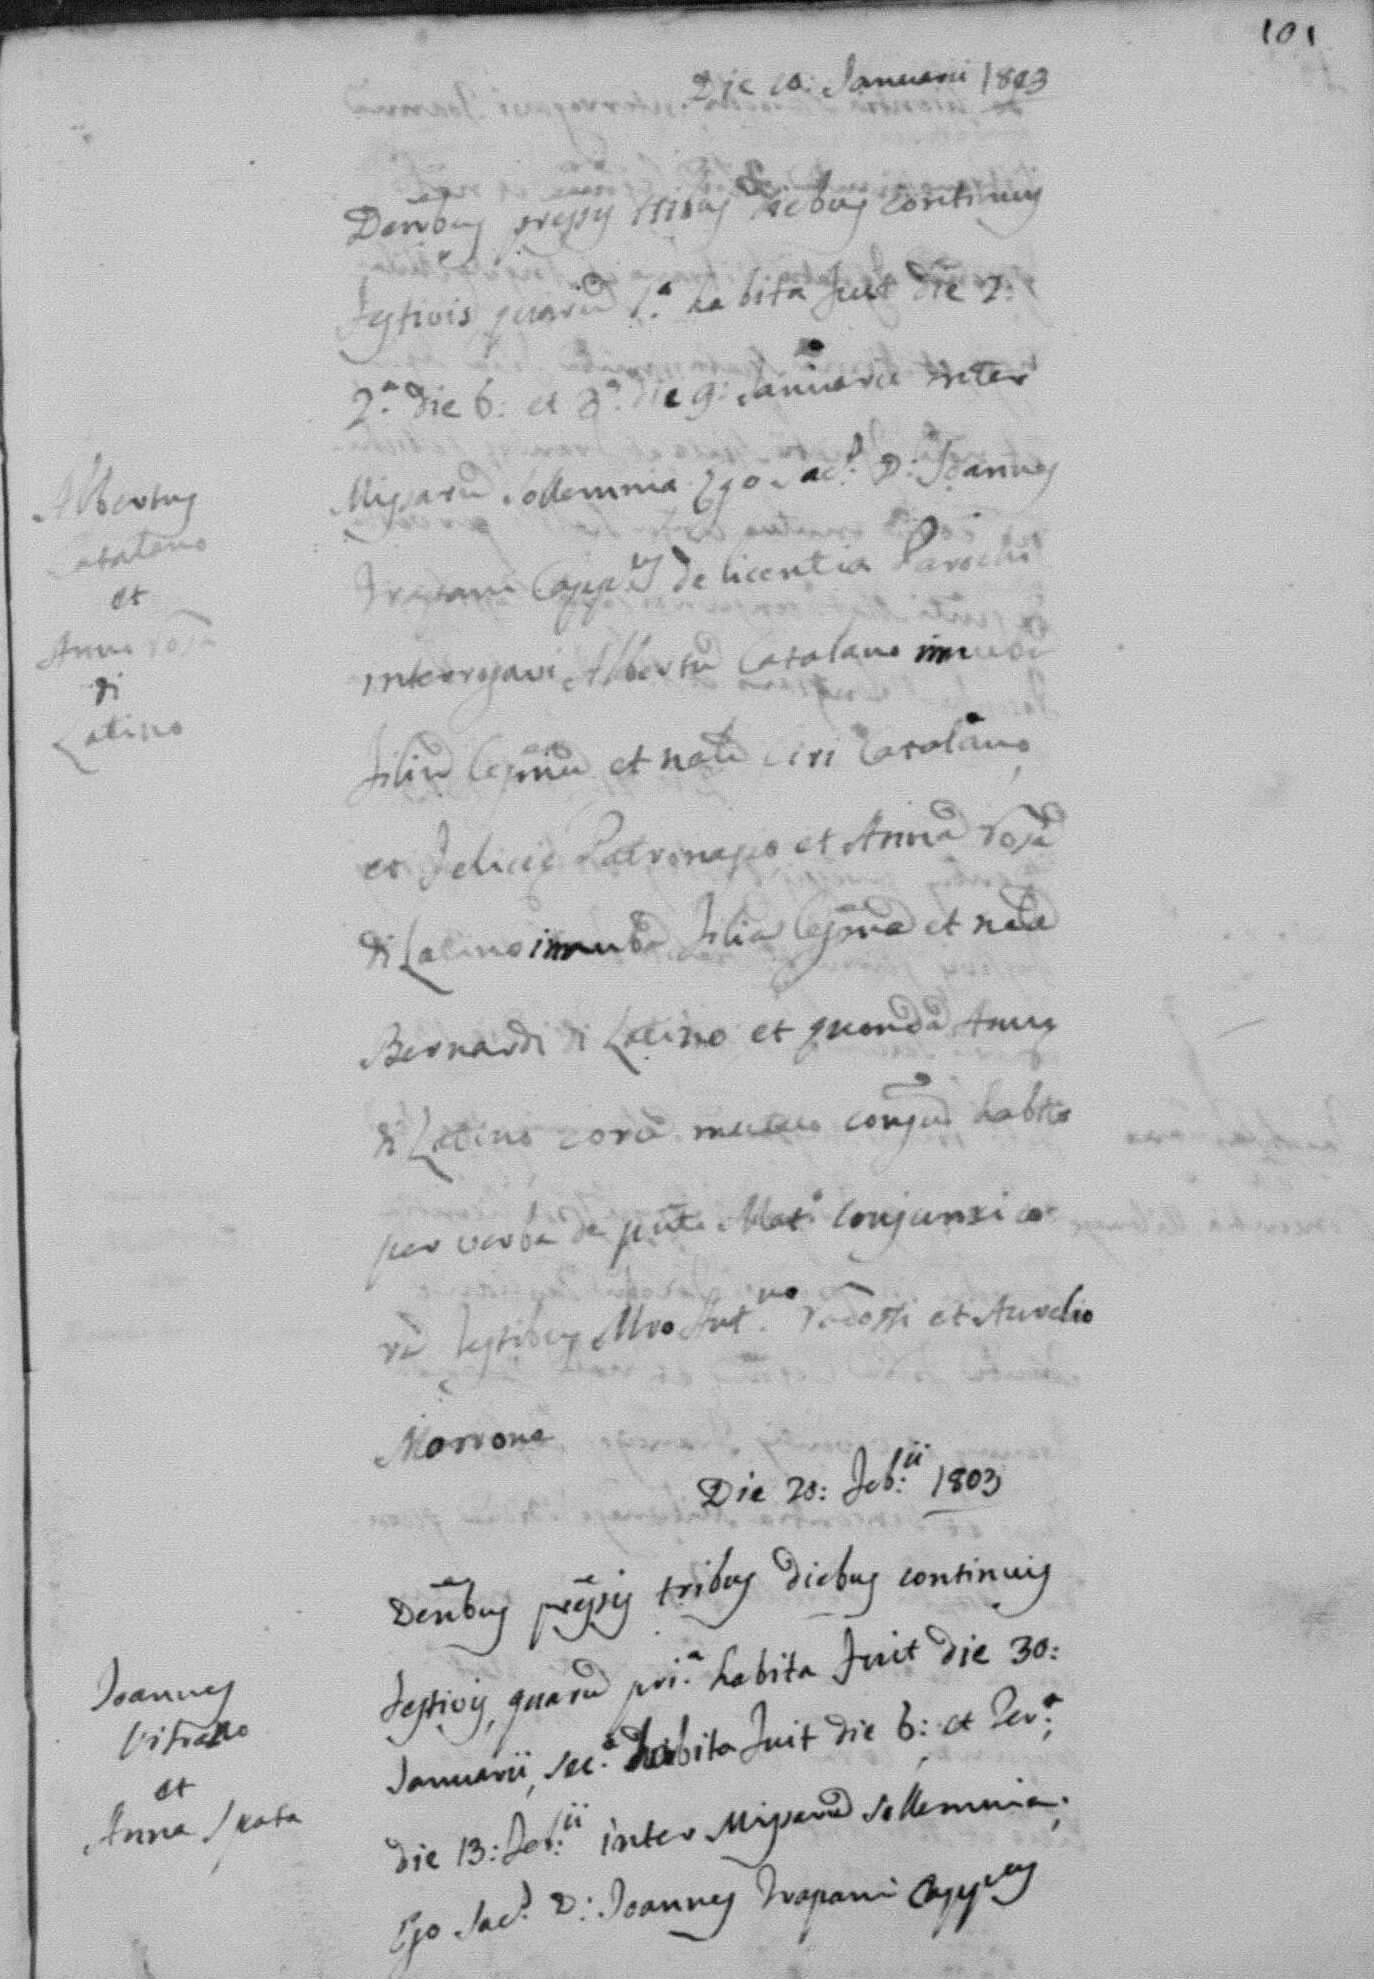 101
Die 10: Januarii 1803
Denūbus p̄ressis tribus diebus continuis
festivis quarū 1.ª habita fuit die 2:
2.ª die 6: et 3.ª die 9: Januarii inter
Missarū sollemnia Ego Sac.d D: Joannes
Trapani Capp.us de licentia Parochi
interrogavi Albertū Catalano innubū
filiū legmū et natū Ciri Catalano
et Felicis Patronaggio et Annā Rosā
di Latino innubā filiā legmā et natā
Bernardi di Latino et quondā Annę
di Latino corā mutuo consensū habito
per verba de pn̄ti Mat.º conjunxi co
rā testibus Mro Ant.no et Aurelio
Morrone
Albertus
Catalano
et
Anna Rosa
di
Latino
Die 20: Feb:ii 1803
Denūbus p̄ressis tribus diebus continuis
festivis, quarū pri.ª habita fuit die 30:
Januarii, sec.ª habita fuit die 6: et Ter.ª
die 13: Feb:ii inter Missarū sollemnia.
Ego Sac.d D: Joannes Trapani Capp.us
Joannes
Vitrano
et
Anna Spata